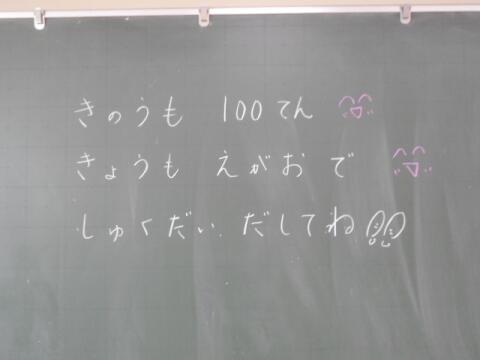 きのうも 100てん
きょうも えがおで
しゅくだい だしてね!!